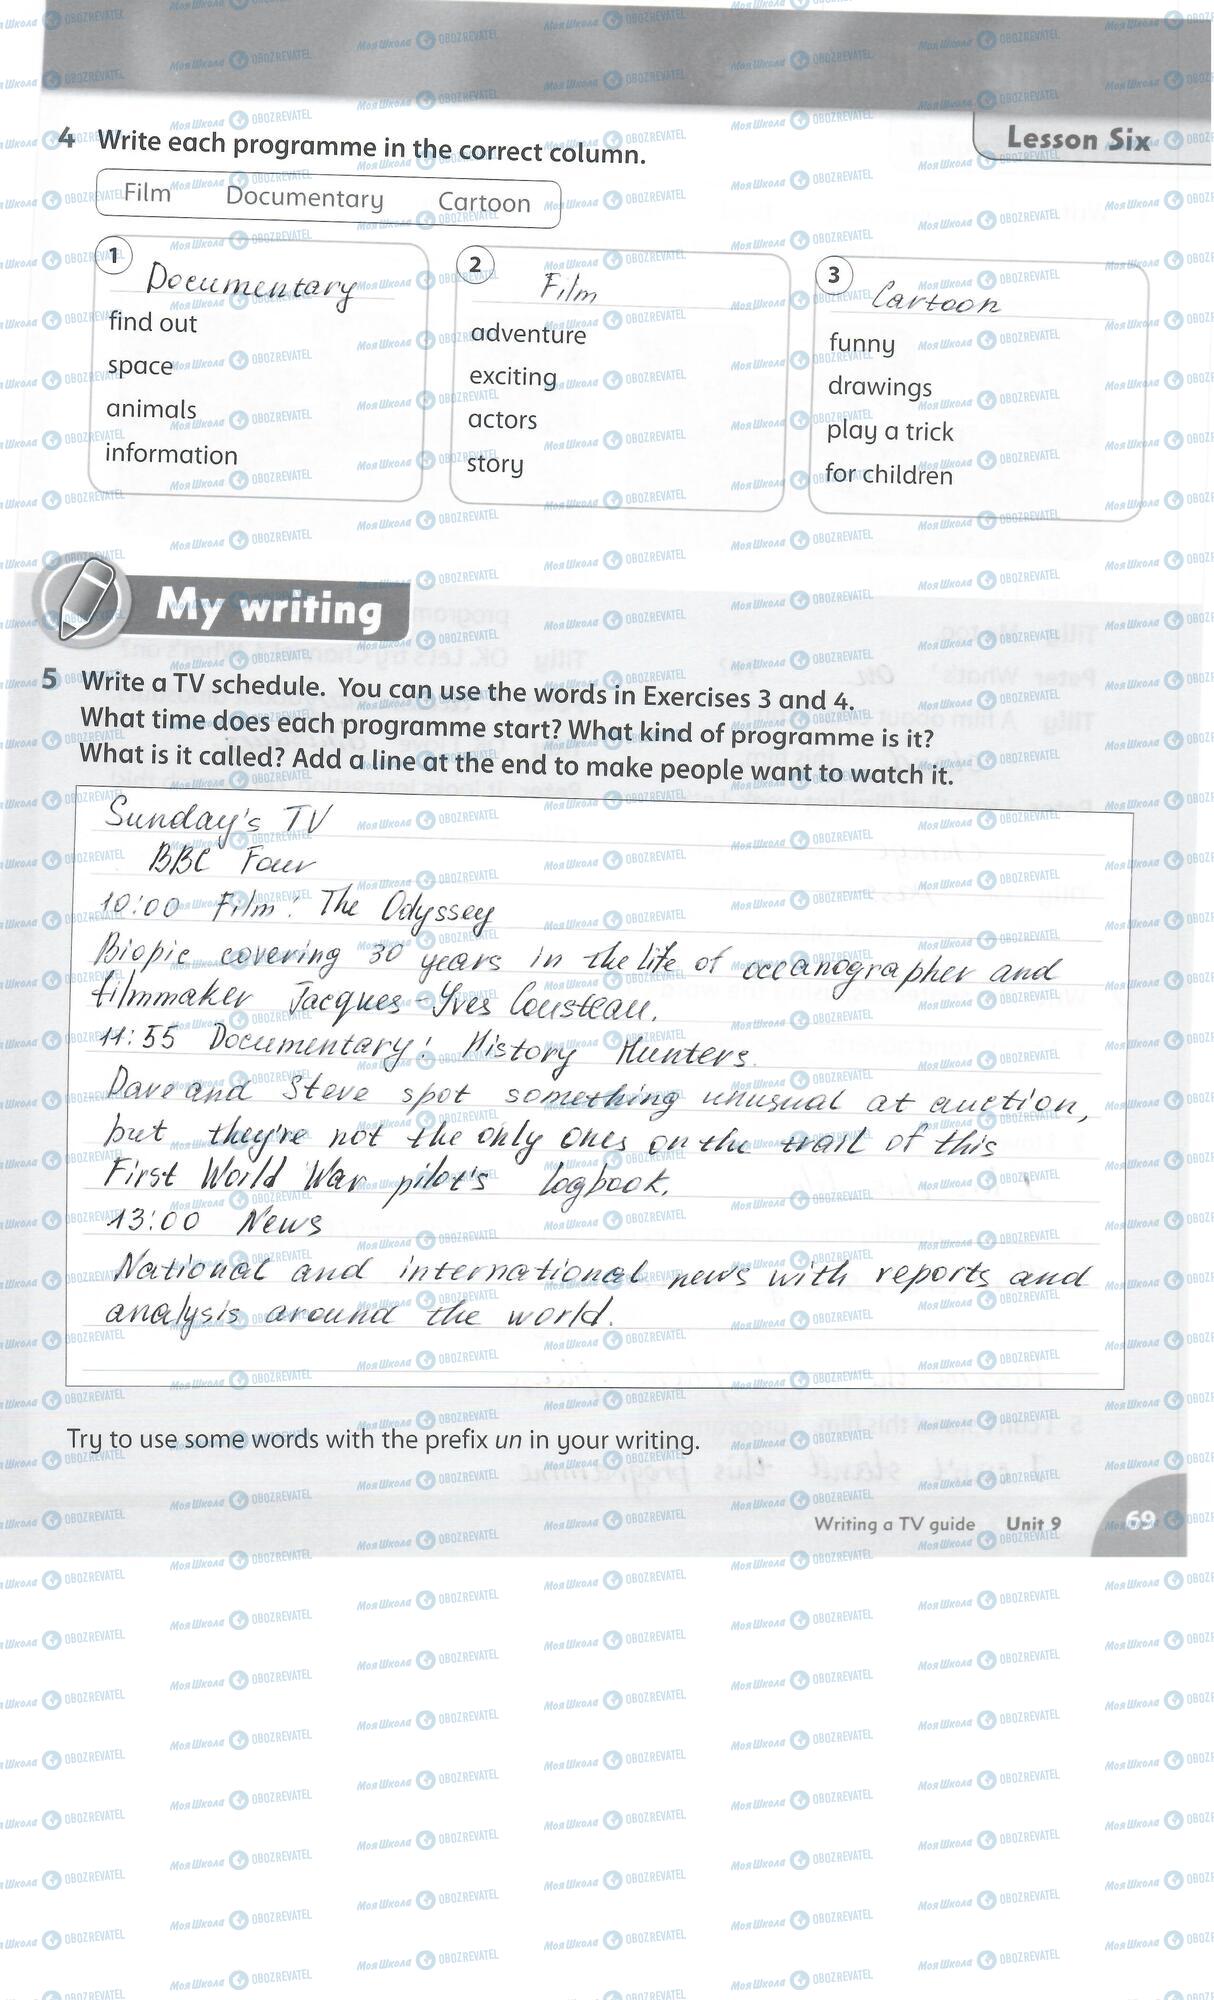 Lesson Six
4 Write each programme in the correct column.
Film Documentary Cartoon
1
Documentary
find out
space
animals
information
2
Film
adventure
exciting
actors
story
3
Cartoon
funny
drawings
play a trick
for children
My writing
5 Write a TV schedule. You can use the words in Exercises 3 and 4.
What time does each programme start? What kind of programme is it?
What is it called? Add a line at the end to make people want to watch it.
Sunday's TV
BBC Four
10:00 Film: The Odyssey
Biopic covering 30 years in the life of oceanographer and
filmmaker Jacques-Yves Cousteau.
11:55 Documentary: History Hunters.
Dave and Steve spot something unusual at auction,
but they're not the only ones on the trail of this
First World War pilot's logbook.
13:00 News
National and international news with reports and
analysis around the world.
Try to use some words with the prefix un in your writing.
Writing a TV guide Unit 9 69
МояШкола OBOZREVATEL